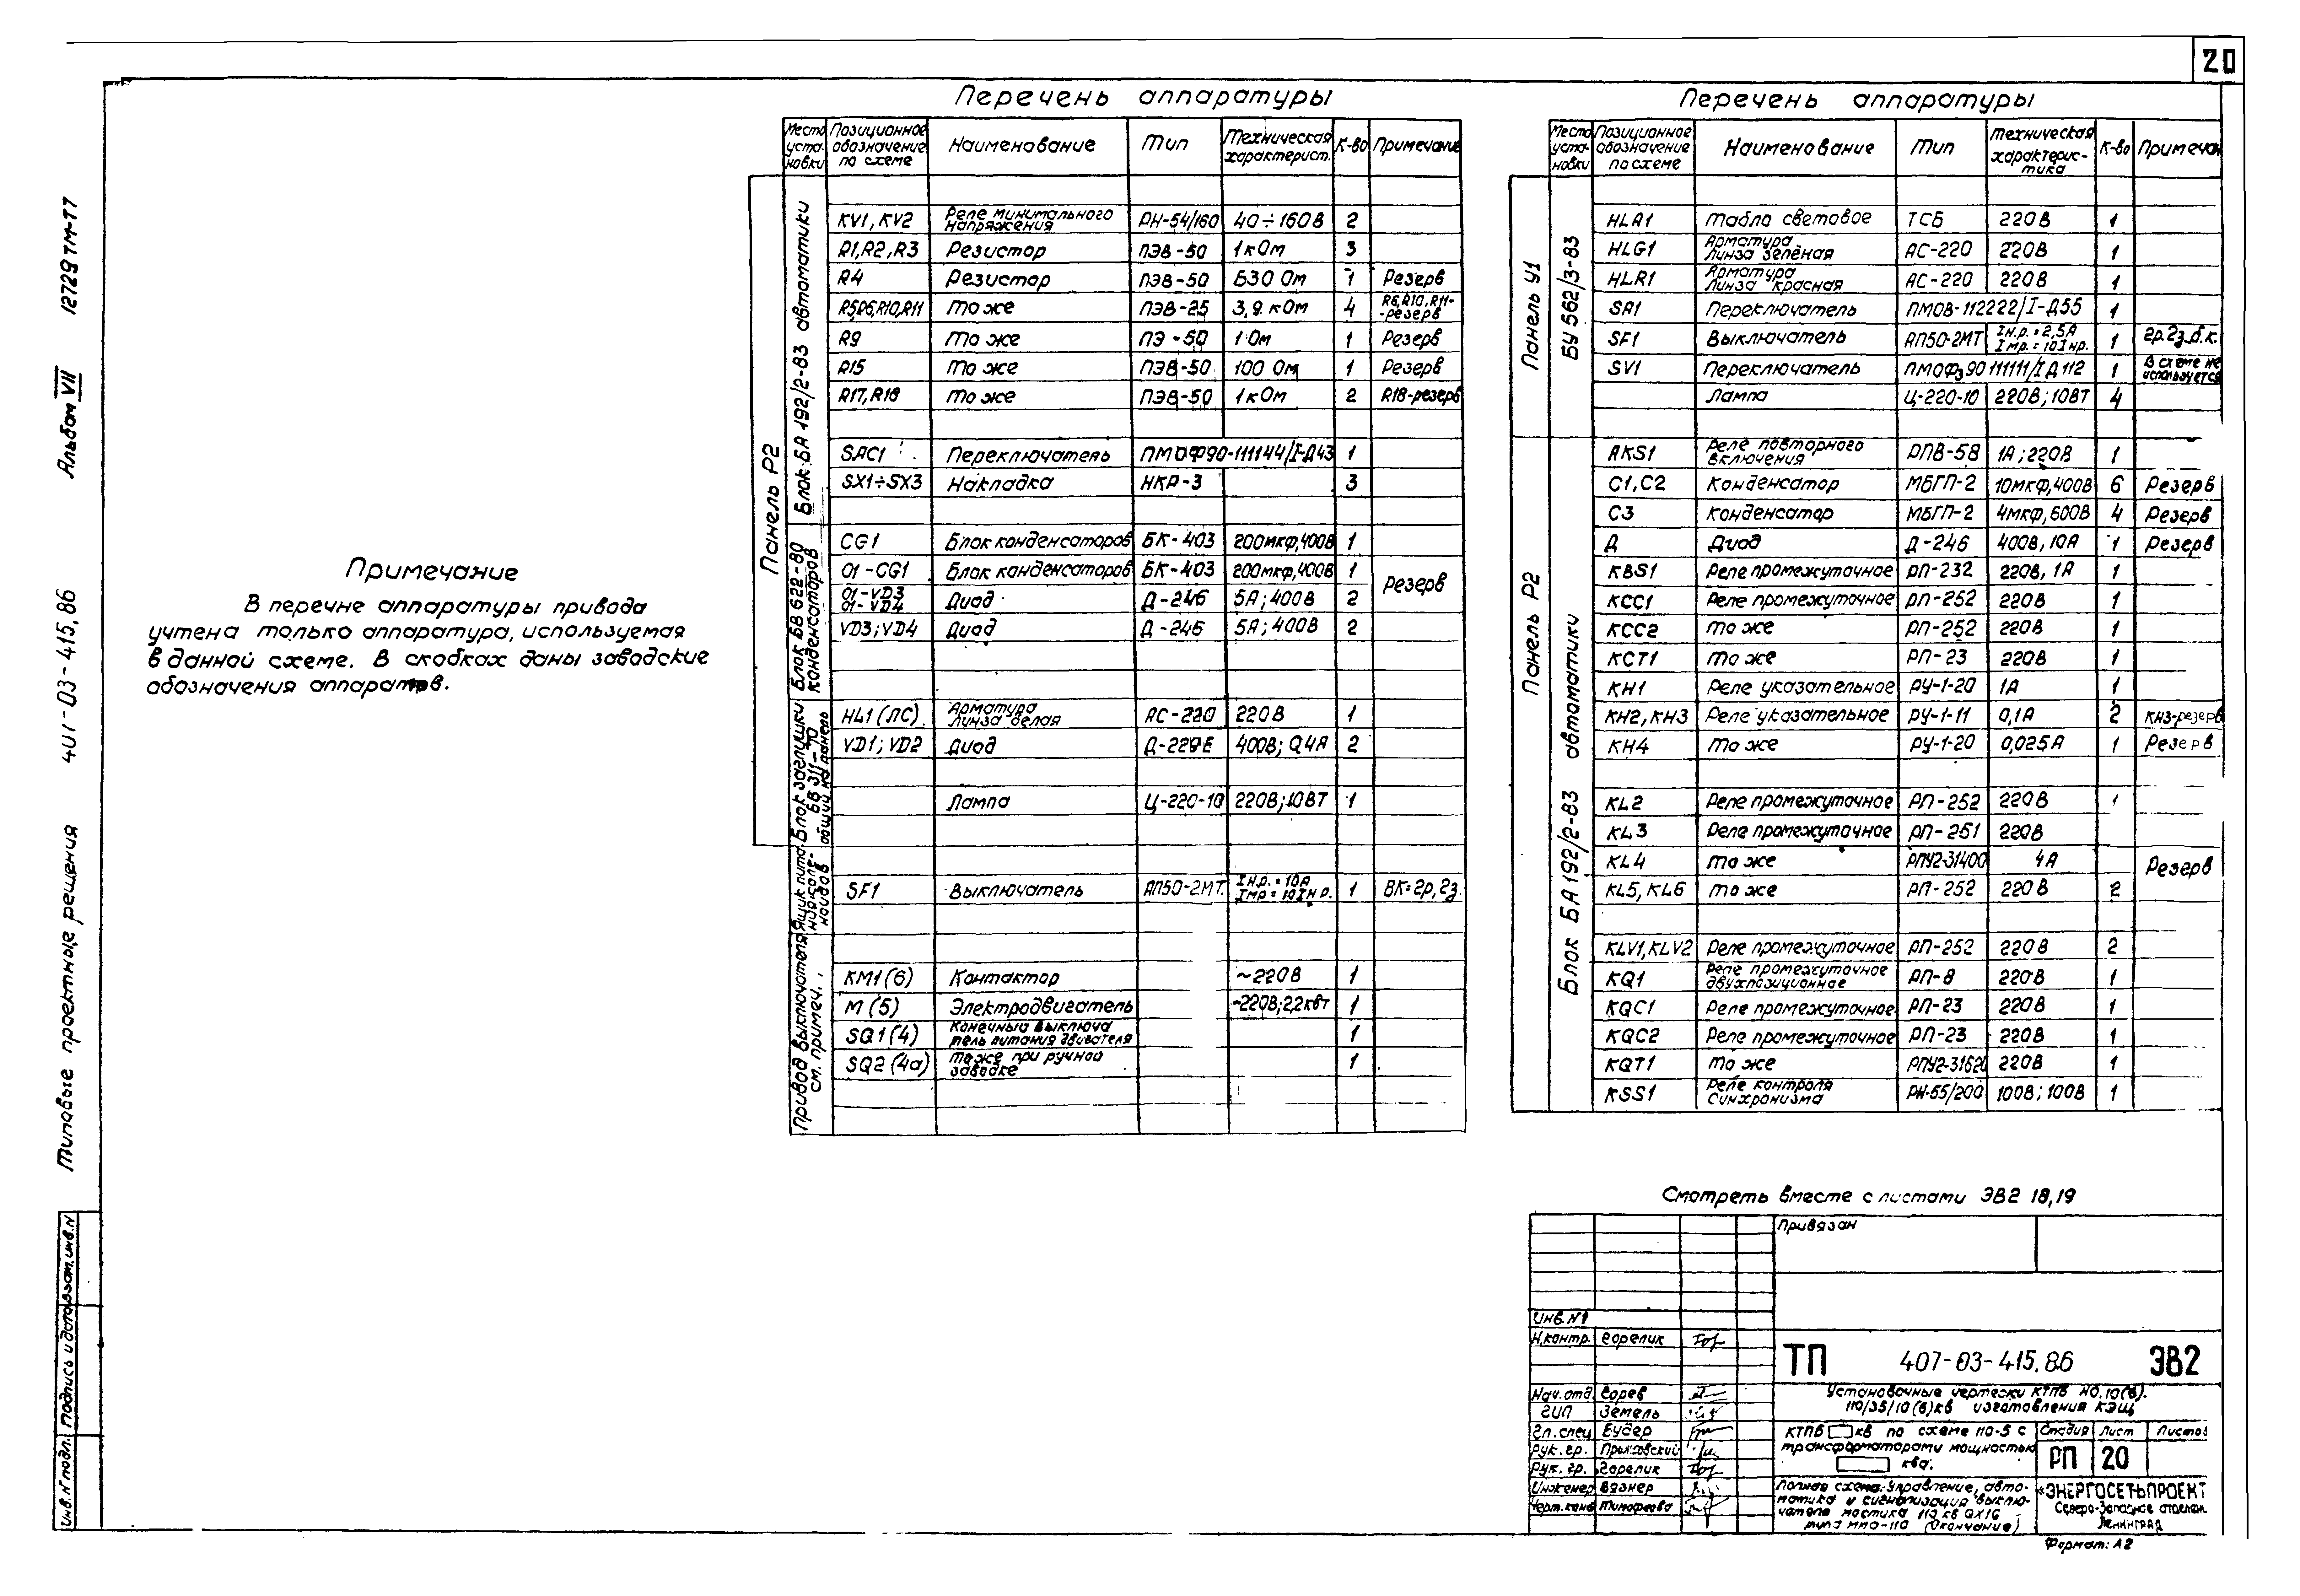 20
12729тм-т7
Альбом VII
407-03-415.86
Типовые проектные решения
Взат.инв.N
Подпись и дата
Инв.N подл.
Примечание
В перечне аппаратуры привода
учтена только аппаратура, используемая
в данной схеме. В скобках даны заводские
обозначения аппаратов.
Перечень аппаратуры
Место установки | Позиционное обозначение по схеме | Наименование | Тип | Техническая характерист. | К-во | Примечание
Панель Р2
Блок БА 192/2-83 автоматики
KV1, KV2 | Реле минимального напряжения | РН-54/160 | 40÷160В | 2
R1, R2, R3 | Резистор | ПЭВ-50 | 1кОм | 3
R4 | Резистор | ПЭВ-50 | 630 Ом | 1 | Резерв
R5,R6,R10,R11 | То же | ПЭВ-25 | 3,9 кОм | 4 | R6,R10,R11--резерв
R9 | То же | ПЭ-50 | 1 Ом | 1 | Резерв
R15 | То же | ПЭВ-50 | 100 Ом | 1 | Резерв
R17, R18 | То же | ПЭВ-50 | 1кОм | 2 | R18-резерв
SAC1 | Переключатель | ПМОФ90-111144/I-Д43 | 1
SX1÷SX3 | Накладка | НКР-3 | 3
Блок БВ 622-80 конденсаторов
CG1 | Блок конденсаторов | БК-403 | 200мкф,400В | 1
01-CG1 | Блок конденсаторов | БК-403 | 200мкф,400В | 1 | Резерв
01-VD3 01-VD4 | Диод | Д-246 | 5А; 400В | 2
VD3; VD4 | Диод | Д-246 | 5А; 400В | 2
Блок заглушки БВ 311-70 общий на панель
HL1 (ЛС) | Арматура Линза белая | АС-220 | 220В | 1
VD1; VD2 | Диод | Д-229Е | 400В; 0,4А | 2
Лампа | Ц-220-10 | 220В; 10ВТ | 1
Ящик питания соленоидов
SF1 | Выключатель | АП50-2МТ. | Iн.р. = 10А Iмр = 10Iн.р. | 1 | ВК=2р, 2з.
Привод выключателя см. примеч.
KM1 (6) | Контактор | ~220В | 1
М (5) | Электродвигатель | ~220В; 2,2квт | 1
SQ1 (4) | Конечный выключатель питания двигателя | 1
SQ2 (4а) | То же при ручной заводке | 1
Перечень аппаратуры
Место установки | Позиционное обозначение по схеме | Наименование | Тип | Техническая характеристика | К-во | Примечан
Панель У1
БУ 562/3-83
HLA1 | Табло световое | ТСБ | 220В | 1
HLG1 | Арматура Линза зелёная | АС-220 | 220В | 1
HLR1 | Арматура Линза красная | АС-220 | 220В | 1
SA1 | Переключатель | ПМОВ-112222/I-Д55 | 1
SF1 | Выключатель | АП50-2МТ | Iн.р. = 2,5А Iмр. = 10Iнр. | 1 | 2р.2з.б.к.
SV1 | Переключатель | ПМОФз90 111111/IД112 | 1 | В схеме не используется
Лампа | Ц-220-10 | 220В; 10ВТ | 4
Панель Р2
Блок БА 192/2-83 автоматики
AKS1 | Реле повторного включения | РПВ-58 | 1А; 220В | 1
C1, C2 | Конденсатор | МБГП-2 | 10мкф,400В | 6 | Резерв
C3 | Конденсатор | МБГП-2 | 4мкф,600В | 4 | Резерв
Д | Диод | Д-246 | 400В, 10А | 1 | Резерв
KBS1 | Реле промежуточное | РП-232 | 220В, 1А | 1
KCC1 | Реле промежуточное | РП-252 | 220В | 1
KCC2 | То же | РП-252 | 220В | 1
KCT1 | То же | РП-23 | 220В | 1
KH1 | Реле указательное | РУ-1-20 | 1А | 1
KH2, KH3 | Реле указательное | РУ-1-11 | 0,1А | 2 | KH3-резерв
KH4 | То же | РУ-1-20 | 0,025А | 1 | Резерв
KL2 | Реле промежуточное | РП-252 | 220В | 1
KL3 | Реле промежуточное | РП-251 | 220В
KL4 | То же | РПУ2-31400 | 4А | Резерв
KL5, KL6 | То же | РП-252 | 220В | 2
KLV1, KLV2 | Реле промежуточное | РП-252 | 220В | 2
KQ1 | Реле промежуточное двухпозиционное | РП-8 | 220В | 1
KQC1 | Реле промежуточное | РП-23 | 220В | 1
KQC2 | Реле промежуточное | РП-23 | 220В | 1
KQT1 | То же | РПУ2-31620 | 220В | 1
KSS1 | Реле контроля Синхронизма | РН-55/200 | 100В; 100В | 1
Смотреть вместе с листами ЭВ2 18,19
Привязан
Инв.N1
Н.контр. Горелик
ТП 407-03-415.86 ЭВ2
Нач.отд. Горев
ГИП Земель
Гл.спец Будер
Рук. гр.
Рук. гр. Горелик
Инженер Вязнер
Черт.конс Тимофеева
Установочные чертежи КТПБ
110/35/10(6)кв изготовления КЭЩ
КТПБ кв по схеме 110-5 с
трансформаторами мощностью
ква.
Стадия Лист Листов
РП 20
Полная схема. Управление, авто-
матика и сигнализация выклю-
чателя мостика 110 кв QX1G
типа ММО-110 (Окончание)
«ЭНЕРГОСЕТЬПРОЕКТ
Северо-Западное отделен.
Ленинград
Формат: А2